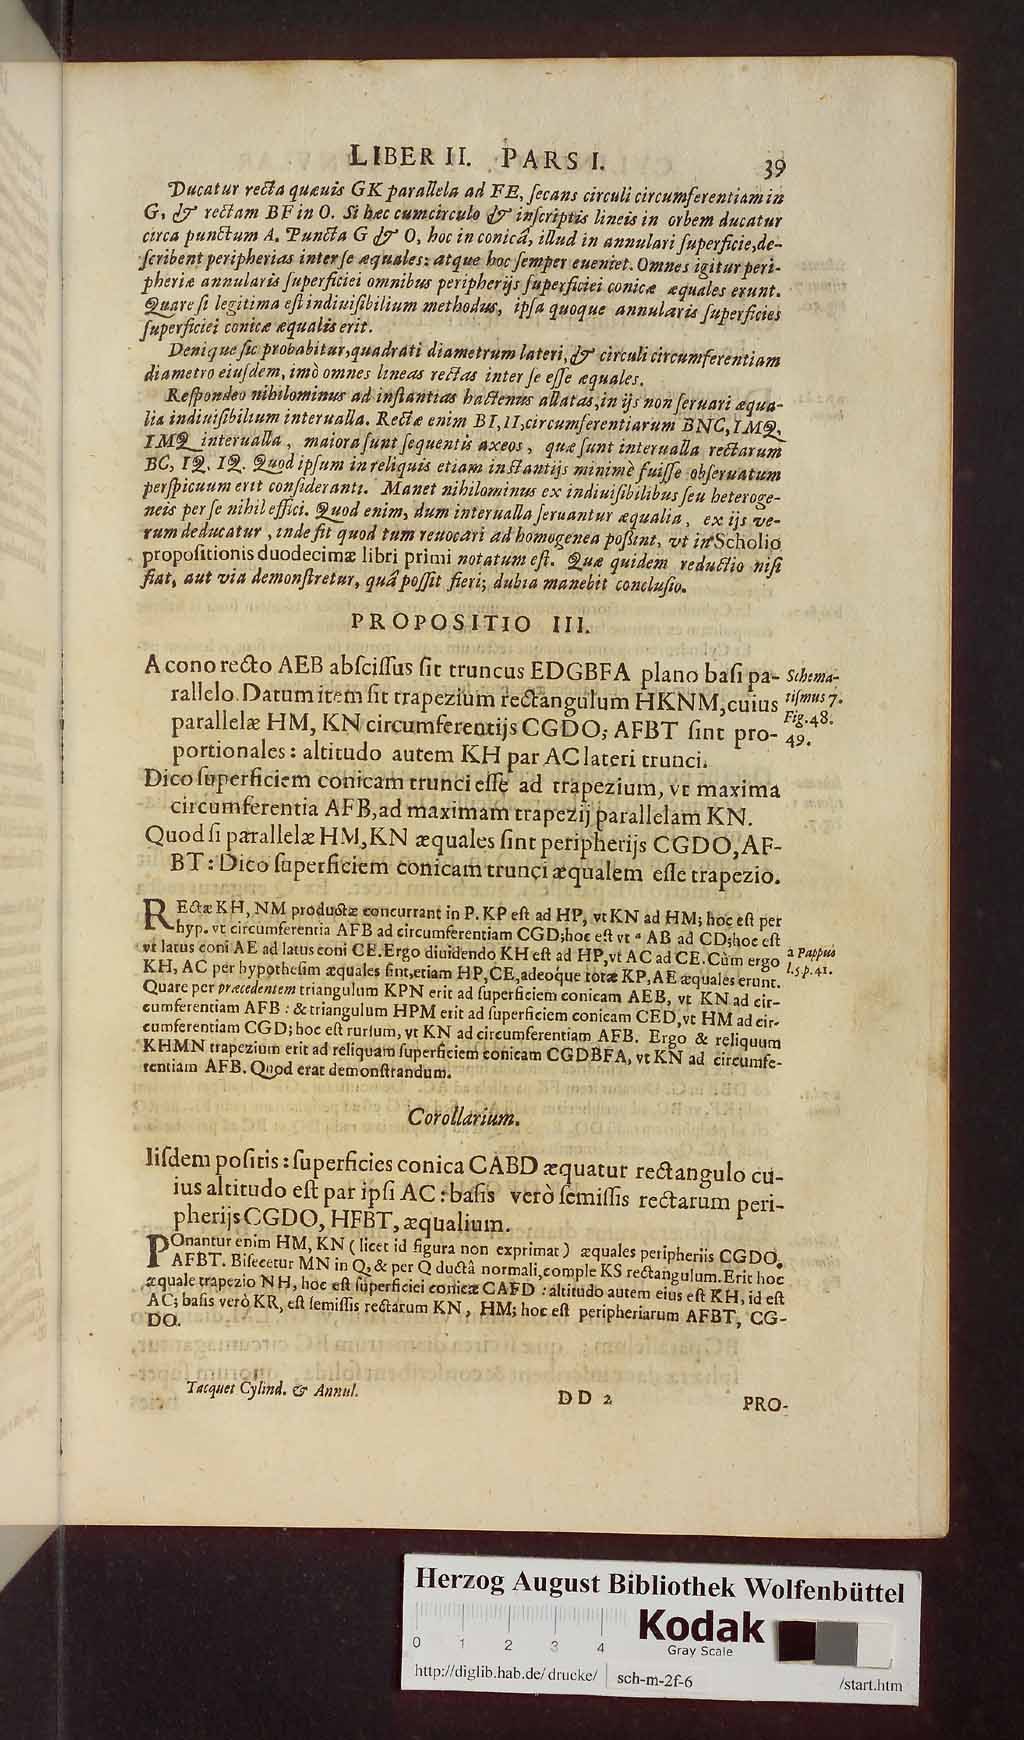 LIBER II. PARS I. 39
Ducatur recta quæuis GK parallela ad FE, ſecans circuli circumferentiam in
G, & rectam BF in O. Si hæc cum circulo & inſcriptis lineis in orbem ducatur
circa punctum A. Puncta G & O, hoc in conicâ, illud in annulari ſuperficie, de-
ſcribent peripherias inter ſe æquales: atque hoc ſemper eueniet. Omnes igitur peri-
pheriæ annularis ſuperficiei omnibus peripherijs ſuperficiei conicæ æquales erunt.
Quare ſi legitima eſt indiuiſibilium methodus, ipſa quoque annularis ſuperficies
ſuperficiei conicæ æqualis erit.
Denique ſic probabitur, quadrati diametrum lateri, & circuli circumferentiam
diametro eiuſdem, imò omnes lineas rectas inter ſe eſſe æquales.
Reſpondeo nihilominus ad inſtantias hactenus allatas, in ijs non ſeruari æqua-
lia indiuiſibilium interualla. Rectæ enim BI, II, circumferentiarum BNC, IMQ,
IMQ interualla, maiora ſunt ſequentis axeos, quæ ſunt interualla rectarum
BC, IQ, IQ. Quod ipſum in reliquis etiam inſtantijs minimè fuiſſe obſeruatum
perſpicuum erit conſideranti. Manet nihilominus ex indiuiſibilibus ſeu heteroge-
neis per ſe nihil effici. Quod enim, dum interualla ſeruantur æqualia, ex ijs ve-
rum deducatur, inde fit quod tum reuocari ad homogenea poſſint, vt in Scholio
propoſitionis duodecimæ libri primi notatum eſt. Quæ quidem reductio niſi
fiat, aut via demonſtretur, quâ poſſit fieri; dubia manebit concluſio.
PROPOSITIO III.
A cono recto AEB abſciſſus ſit truncus EDGBFA plano baſi pa- Schema-
rallelo. Datum item ſit trapezium rectangulum HKNM, cuius tiſmus 7.
parallelæ HM, KN circumferentijs CGDO, AFBT ſint pro- Fig. 48.
portionales: altitudo autem KH par AC lateri trunci. 49.
Dico ſuperficiem conicam trunci eſſe ad trapezium, vt maxima
circumferentia AFB, ad maximam trapezij parallelam KN.
Quod ſi parallelæ HM, KN æquales ſint peripherijs CGDO, AF-
BT: Dico ſuperficiem conicam trunci æqualem eſſe trapezio.
REctæ KH, NM productæ concurrant in P. KP eſt ad HP, vt KN ad HM; hoc eſt per
hyp. vt circumferentia AFB ad circumferentiam CGD; hoc eſt vt a AB ad CD; hoc eſt
vt latus coni AE ad latus coni CE. Ergo diuidendo KH eſt ad HP, vt AC ad CE. Cùm ergo a Pappus
KH, AC per hypotheſim æquales ſint, etiam HP, CE, adeoque totæ KP, AE æquales erunt. l. 5. p. 41.
Quare per præcedentem triangulum KPN erit ad ſuperficiem conicam AEB, vt KN ad cir-
cumferentiam AFB: & triangulum HPM erit ad ſuperficiem conicam CED, vt HM ad cir-
cumferentiam CGD; hoc eſt rurſum, vt KN ad circumferentiam AFB. Ergo & reliquum
KHMN trapezium erit ad reliquam ſuperficiem conicam CGDBFA, vt KN ad circumfe-
rentiam AFB. Quod erat demonſtrandum.
Corollarium.
Iiſdem poſitis: ſuperficies conica CABD æquatur rectangulo cu-
ius altitudo eſt par ipſi AC: baſis verò ſemiſſis rectarum peri-
pherijs CGDO, HFBT, æqualium.
POnantur enim HM, KN (licet id figura non exprimat) æquales peripheriis CGDO,
AFBT. Biſecetur MN in Q, & per Q ductâ normali, comple KS rectangulum. Erit hoc
æquale trapezio NH, hoc eſt ſuperficiei conicæ CAFD: altitudo autem eius eſt KH, id eſt
AC; baſis verò KR, eſt ſemiſſis rectarum KN, HM; hoc eſt peripheriarum AFBT, CG-
DO.
Tacquet Cylind. & Annul. DD 2 PRO-
Herzog August Bibliothek Wolfenbüttel
Kodak
Gray Scale
0 1 2 3 4
http://diglib.hab.de/drucke/ sch-m-2f-6 /start.htm